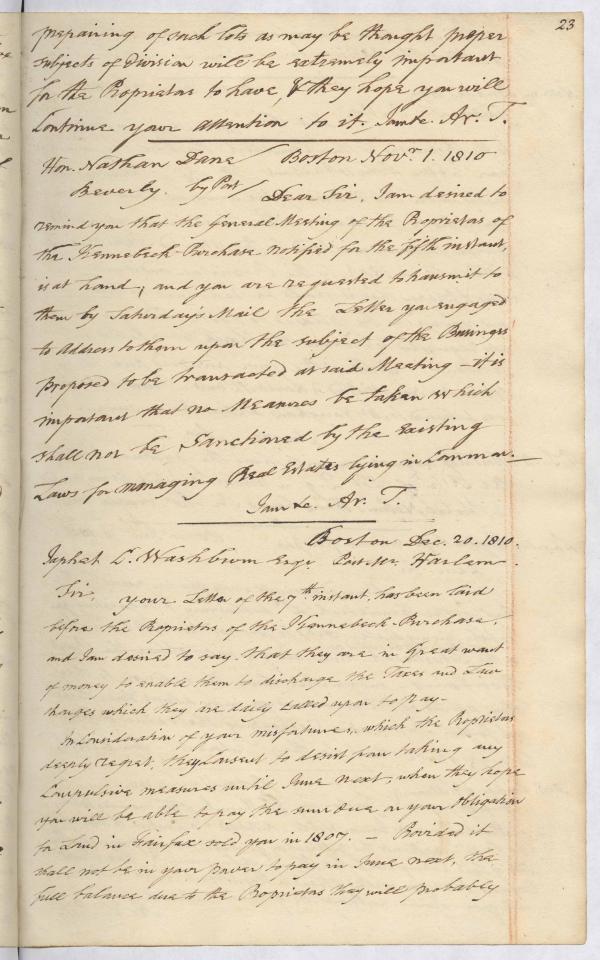 23
prepairing of such lots as may be thought proper
subjects of Division will be extremely important
for the Proprietors to have, & they hope you will
Continue your attention to it. I am &c. Ar. T.
Hon. Nathan Dane / Boston Novr. 1. 1810
Beverly. by Post / Dear Sir, I am desired to
remind you that the General Meeting of the Proprietors of
the Kennebeck Purchase notified for the fifth instant,
is at hand, and you are requested to transmit to
them by Saturday's Mail the Letter you engaged
to address to them upon the subject of the Business
proposed to be transacted at said Meeting - it is
important that no Measures be taken which
shall not be Sanctioned by the existing
Laws for managing Real Estates lying in Common.
I am &c. Ar. T.
Boston Dec. 20. 1810.
Japhet C. Washburn Esqr. Post Mr. Harlem
Sir, your Letter of the 7th instant, has been laid
before the Proprietors of the Kennebeck Purchase,
and I am desired to say that they are in Great want
of money to enable them to discharge the Taxes and Law
charges which they are daily Called upon to pay-
In Consideration of your misfortunes, which the Proprietors
deeply regret, they Consent to desist from taking any
Compulsive measures until June next, when they hope
you will be able to pay the sum due on your Obligation
for Land in Fairfax sold you in 1807. - Provided it
shall not be in your power to pay in June next, the
full balance due to the Proprietors they will probably